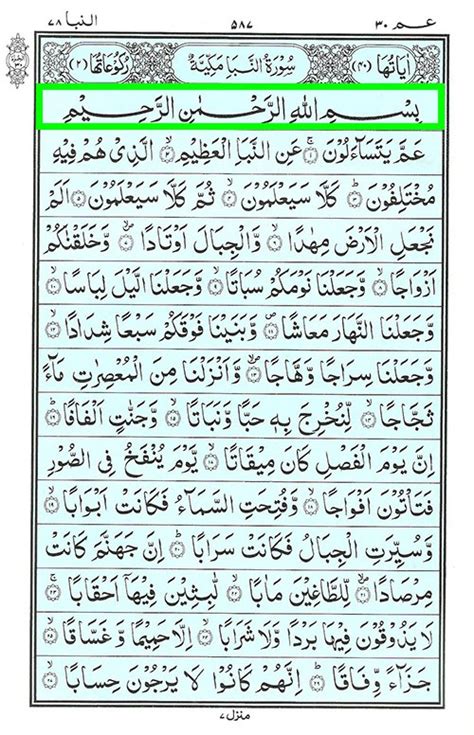 عم ۳۰ ۵۸۷ النبا ۷۸
اٰيَاتُهَا (۴۰) سُوْرَةُ النَّبَاِ مَكِّيَّةٌ رُكُوْعَاتُهَا (۲)
بِسْمِ اللّٰهِ الرَّحْمٰنِ الرَّحِيْمِ
عَمَّ يَتَسَآءَلُوْنَ ۱ عَنِ النَّبَاِ الْعَظِيْمِ ۲ الَّذِىْ هُمْ فِيْهِ
مُخْتَلِفُوْنَ ۳ كَلَّا سَيَعْلَمُوْنَ ۴ ثُمَّ كَلَّا سَيَعْلَمُوْنَ ۵ اَلَمْ
نَجْعَلِ الْاَرْضَ مِهٰدًا ۶ وَّالْجِبَالَ اَوْتَادًا ۷ وَّخَلَقْنٰكُمْ
اَزْوَاجًا ۸ وَّجَعَلْنَا نَوْمَكُمْ سُبَاتًا ۹ وَّجَعَلْنَا الَّيْلَ لِبَاسًا ۱۰
وَّجَعَلْنَا النَّهَارَ مَعَاشًا ۱۱ وَّبَنَيْنَا فَوْقَكُمْ سَبْعًا شِدَادًا ۱۲
وَّجَعَلْنَا سِرَاجًا وَّهَّاجًا ۱۳ وَّاَنْزَلْنَا مِنَ الْمُعْصِرٰتِ مَآءً
ثَجَّاجًا ۱۴ لِّنُخْرِجَ بِهٖ حَبًّا وَّنَبَاتًا ۱۵ وَّجَنّٰتٍ اَلْفَافًا ۱۶
اِنَّ يَوْمَ الْفَصْلِ كَانَ مِيْقَاتًا ۱۷ يَّوْمَ يُنْفَخُ فِى الصُّوْرِ
فَتَاْتُوْنَ اَفْوَاجًا ۱۸ وَّفُتِحَتِ السَّمَآءُ فَكَانَتْ اَبْوَابًا ۱۹
وَّسُيِّرَتِ الْجِبَالُ فَكَانَتْ سَرَابًا ۲۰ اِنَّ جَهَنَّمَ كَانَتْ
مِرْصَادًا ۲۱ لِّلطَّاغِيْنَ مَاٰبًا ۲۲ لّٰبِثِيْنَ فِيْهَآ اَحْقَابًا ۲۳
لَا يَذُوْقُوْنَ فِيْهَا بَرْدًا وَّلَا شَرَابًا ۲۴ اِلَّا حَمِيْمًا وَّغَسَّاقًا ۲۵
جَزَآءً وِّفَاقًا ۲۶ اِنَّهُمْ كَانُوْا لَا يَرْجُوْنَ حِسَابًا ۲۷
منزل ۷